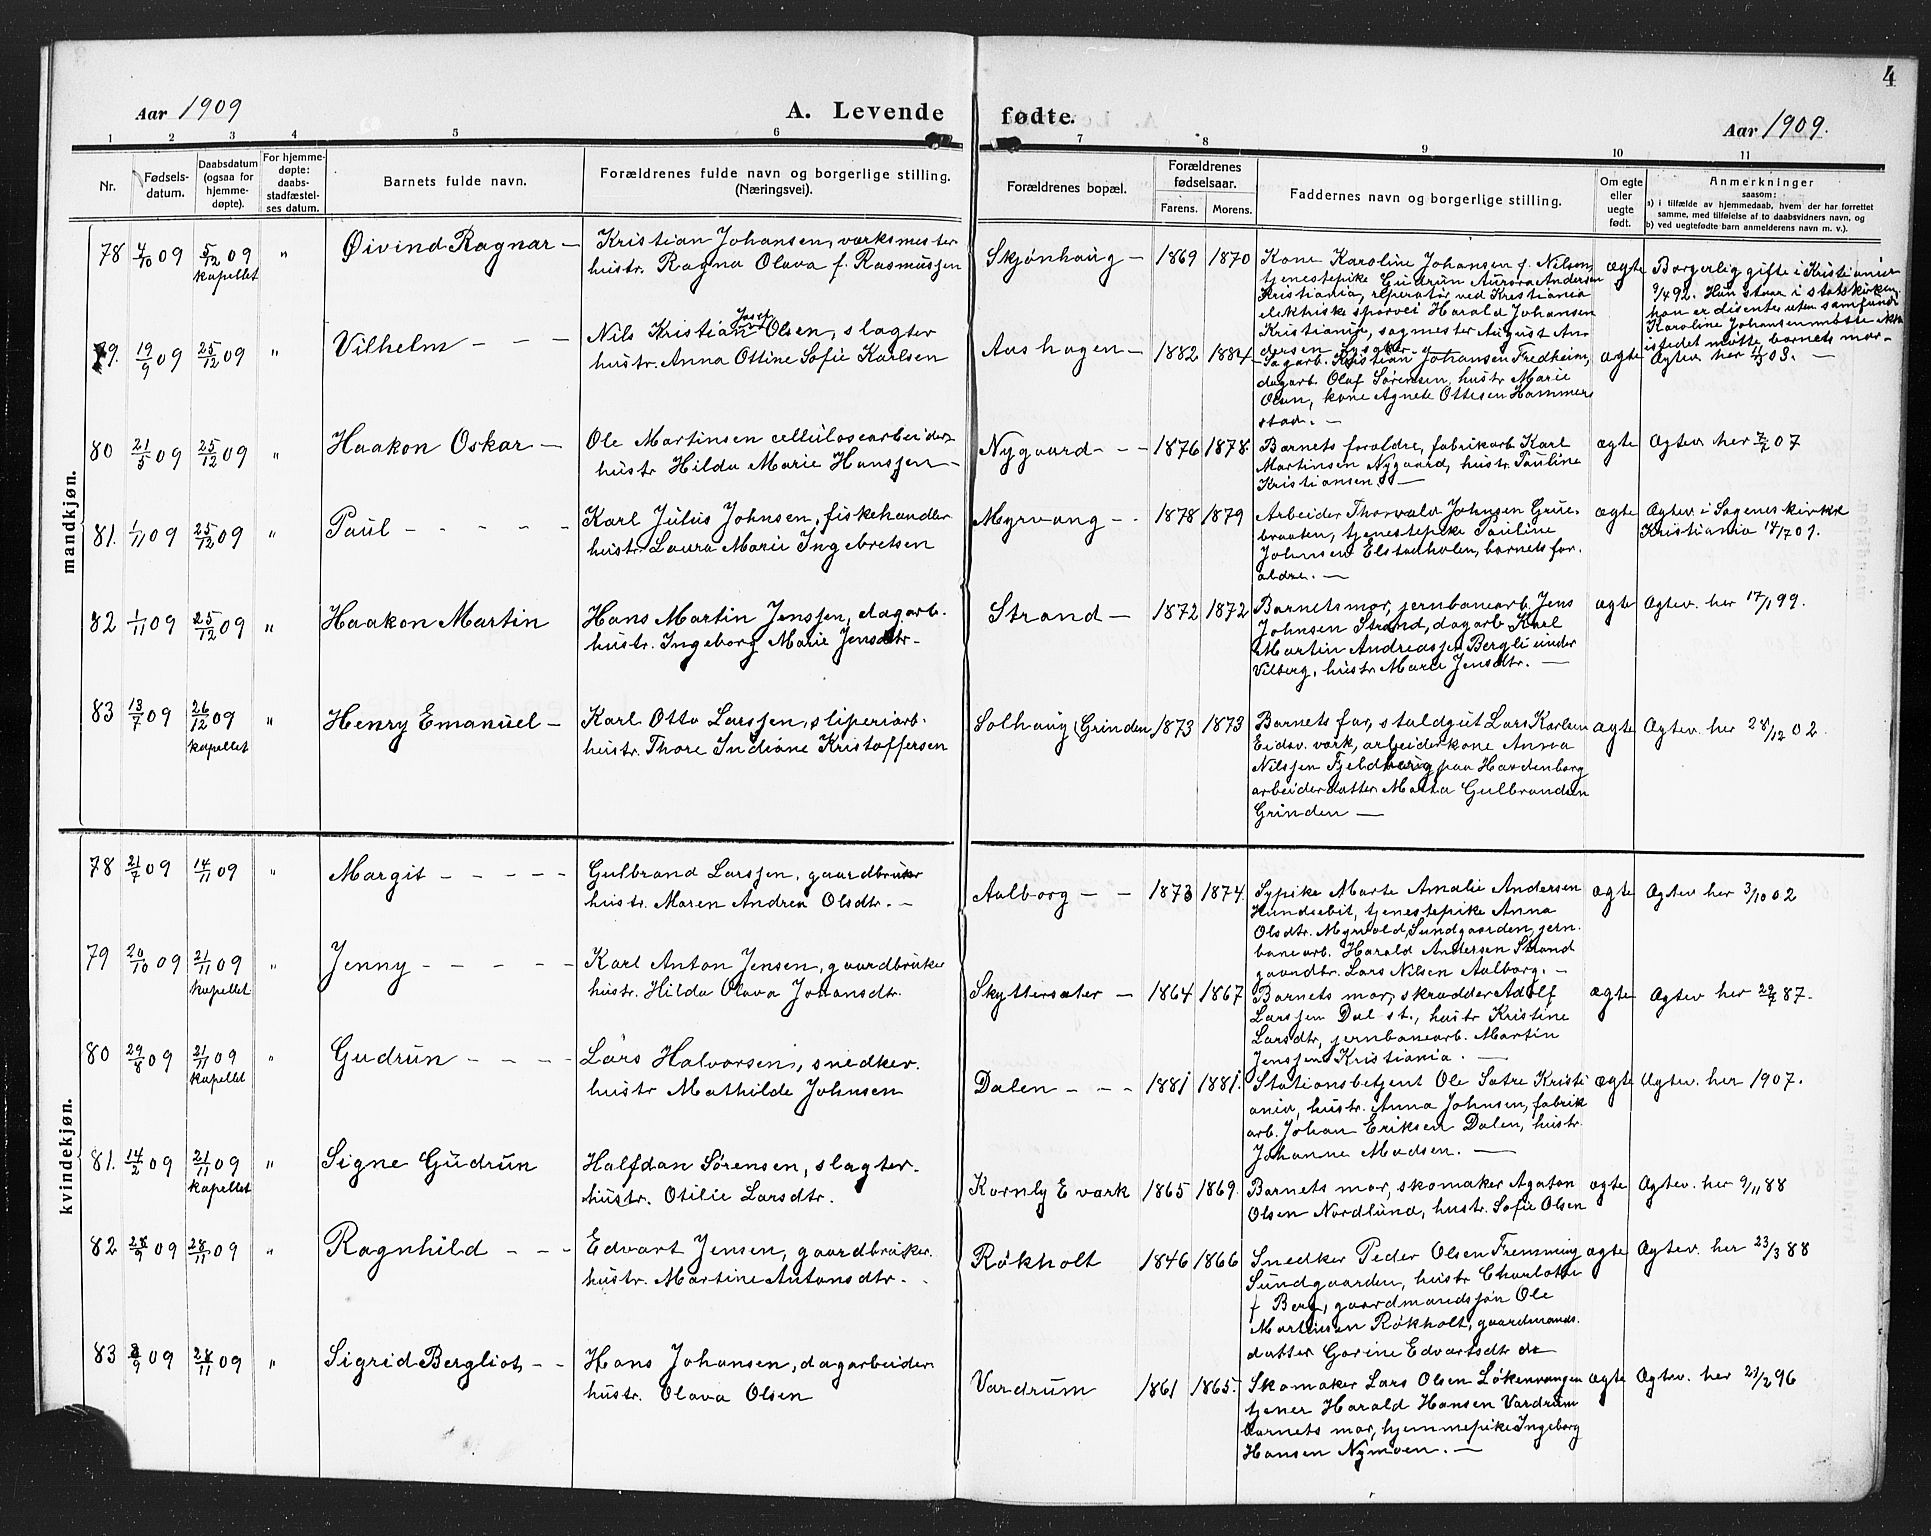 4
Aar 1909
A. Levende fødte.
Aar 1909.
1 2 3 4 5 6 7 8 9 10 11
Nr.
Fødsels-
datum.
Daabsdatum
(ogsaa for
hjemme-
døpte).
For hjemme-
døpte:
daabs-
stadfæstel-
ses datum.
Barnets fulde navn.
Forældrenes fulde navn og borgerlige stilling.
(Næringsvei).
Forældrenes bopæl.
Forældrenes
fødselsaar.
Farens. Morens.
Faddernes navn og borgerlige stilling.
Om egte
eller
uegte
født.
Anmerkninger
saasom:
a) i tilfælde av hjemmedaab, hvem der har forrettet
samme, med tilføielse af to daabsvidners navn, og
b) ved uegtefødte barn anmelderens navn m. v.).
mandkjøn.
78 4/10 09 5/12 09 kapellet " Øivind Ragnar —
Kristian Johansen, værksmester
hustr. Ragna Olava f. Rasmussen
Skjønhaug — 1869 1870
Kone Karoline Johansen f. Nilsen,
tjenestepike Gudrun Aurora Andersen
Kristiania, reperatør ved Kristiania
elektriske sporvei Harald Johansen
Kristiania, sagmester August An-
dersen
ægte
Borgerlig gifte i Kristiania
9/4 92. Hun staar i statskirken,
han er disenter uten samfund.
Karoline Johansen møtte ikke
istedet møtte barnets mor —
79. 19/9 09 25/12 09 " Vilhelm — — —
Nils Kristian Josef Olsen, slagter
hustr. Anna Ottine Sofie Karlsen
Aashagen — 1882 1884
Sagarb. Kristian Johansen Fredheim,
dagarb. Olaf Sørensen, hustr. Marie
Olsen, kone Agnete Ottesen Hammer
stad. —
ægte Ægtev. her 11/3 03. —
80 21/5 09 25/12 09 " Haakon Oskar —
Ole Martinsen cellulosearbeider
hustr Hilda Marie Hanssen —
Nygaard — — 1876 1878.
Barnets forældre, fabrikarb Karl
Martinsen Nygaard, hustr. Pauline
Kristiansen. —
ægte Ægtev her 2/2 07
81. 1/11 09 25/12 09 " Paul — — — —
Karl Julius Johnsen, fiskehandler
hustr. Laura Marie Ingebretsen
Myrvang — 1878 1879
Arbeider Thorvald Johnsen Grue-
braaten, tjenestepike Pauline
Johnsen Elstadholen, barnets for-
ældre. —
ægte Ægtev i Sagenes kirke
Kristiania 14/7 01.
82 1/11 09 25/12 09 " Haakon Martin
Hans Martin Jenssen, dagarb.
hustr. Ingeborg Marie Jensdtr.
Strand — 1872 1872
Barnets mor, jernbanearb. Jens
Johnsen Strand, dagarb Karl
Martin Andreassen Bergli under
Vilberg, hustr. Marie Jensdtr. —
ægte Ægtev. her 17/1 99.
83 13/7 09 26/12 09 kapellet " Henry Emanuel —
Karl Otto Larssen, sliperiarb.
hustr. Thore Indiane Kristoffersen
Solhaug (Grinden 1873 1873
Barnets far, staldgut Lars Karlsen
Eidsv. værk, arbeiderkone Anna
Nilssen Fjeldhaug paa Hardenborg
arbeiderdatter Marta Gulbrandsen
Grinden —
ægte Ægtev. her 28/12 02.
kvindekjøn.
78 21/7 09 14/11 09 " Margit — — — — —
Gulbrand Larssen, gaardbruker
hustr. Maren Andrea Olsdtr. —
Aalborg — — 1873 1874
Sypike Marte Amalie Andersen
Hundsebit, tjenestepike Anna
Olsdtr. Myrvold, Sundgaarden, jern-
banearb. Harald Andersen Strand
gaardbr. Lars Nilsen Aalborg. —
ægte Ægtev her 3/10 02
79 20/10 09 21/11 09 kapellet " Jenny — — — — —
Karl Anton Jensen, gaardbruker
hustr. Hilda Olava Johansdtr.
Skyttersæter — 1864 1867
Barnets mor, skrædder Adolf
Larssen Dal st., hustr Kristine
Larsdtr, jernbanearb. Martin
Jenssen Kristiania. —
ægte Ægtev her 29/7 87.
80 29/8 09 21/11 09 kapellet " Gudrun — — — —
Lars Halvorsen, snedker.
hustr Mathilde Johnsen
Dalen — — — 1881 1881.
Stationsbetjent Ole Sætre Kristi
ania, hustr. Anna Johnsen, fabrik
arb. Johan Eriksen Dalen, hustr.
Johanne Madsen. —
ægte Ægtev. her 1907.
81. 14/2 09 21/11 09 kapellet " Signe Gudrun
Halfdan Sørensen, slagter.
hustr. Otilie Larsdtr.
Kornly E værk 1865 1869.
Barnets mor, skomaker Agaton
Olsen Nordlund, hustr. Sofie Olsen
ægte Ægtev. her 9/11 88
82 28/9 09 28/11 09 " Ragnhild — — —
Edvart Jensen, gaardbruker.
hustr. Martine Antonsdtr.
Røkholt 1846 1866
Snedker Peder Olsen Fremming
Sundgaarden, hustr Charlotte
f Berg, gaardmandssøn Ole
Martinsen Røkholt, gaardmands-
datter Gorine Edvartsdtr do
ægte Ægtev. her 23/3 88
83 8/9 09 28/11 09 " Sigrid Bergliot — —
Hans Johansen, dagarbeider
hustr. Olava Olsen
Vardrum 1861 1865.
Skomaker Lars Olsen Løkenvangen
tjener Harald Hansen Vardrum
barnets mor, hjemmepike Ingeborg
Hansen Nymoen. —
ægte Ægtev. her 21/2 96